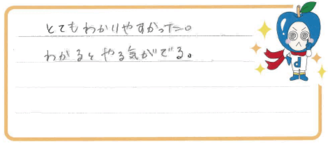 とてもわかりやすかった。
わかるとやる気がでる。